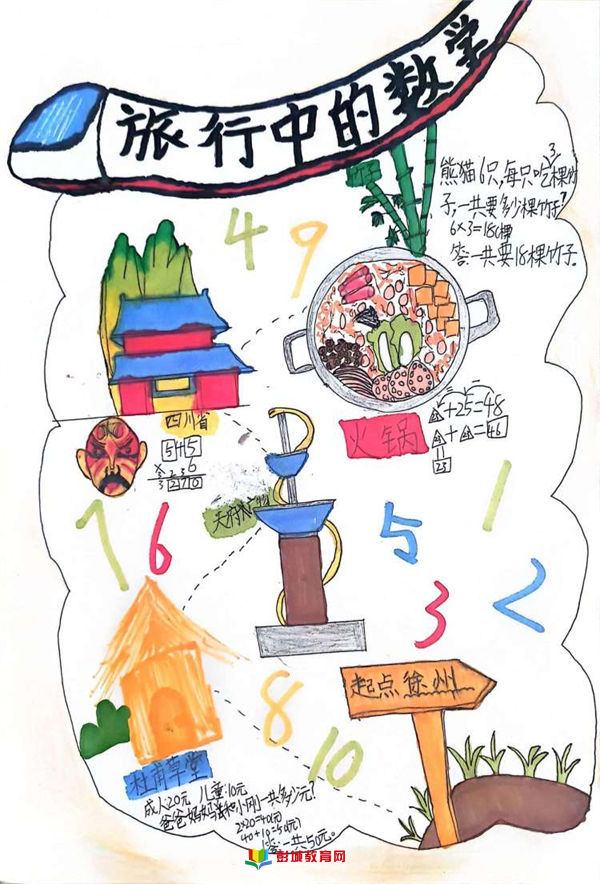 旅行中的数学
竹子
熊猫6只,每只吃3棵竹
子,一共要多少棵竹子?
6×3=18(棵)
答:一共要18棵竹子。
4
9
四川省
火锅
+25=48
+ =46
23
天府
7
6
1
5
2
3
8
10
起点徐州
杜甫草堂
成人:20元 儿童:10元
爸爸妈妈和小刚一共多少元?
2×20=40(元)
40+10=50(元)
答:一共50元。
彭城教育网